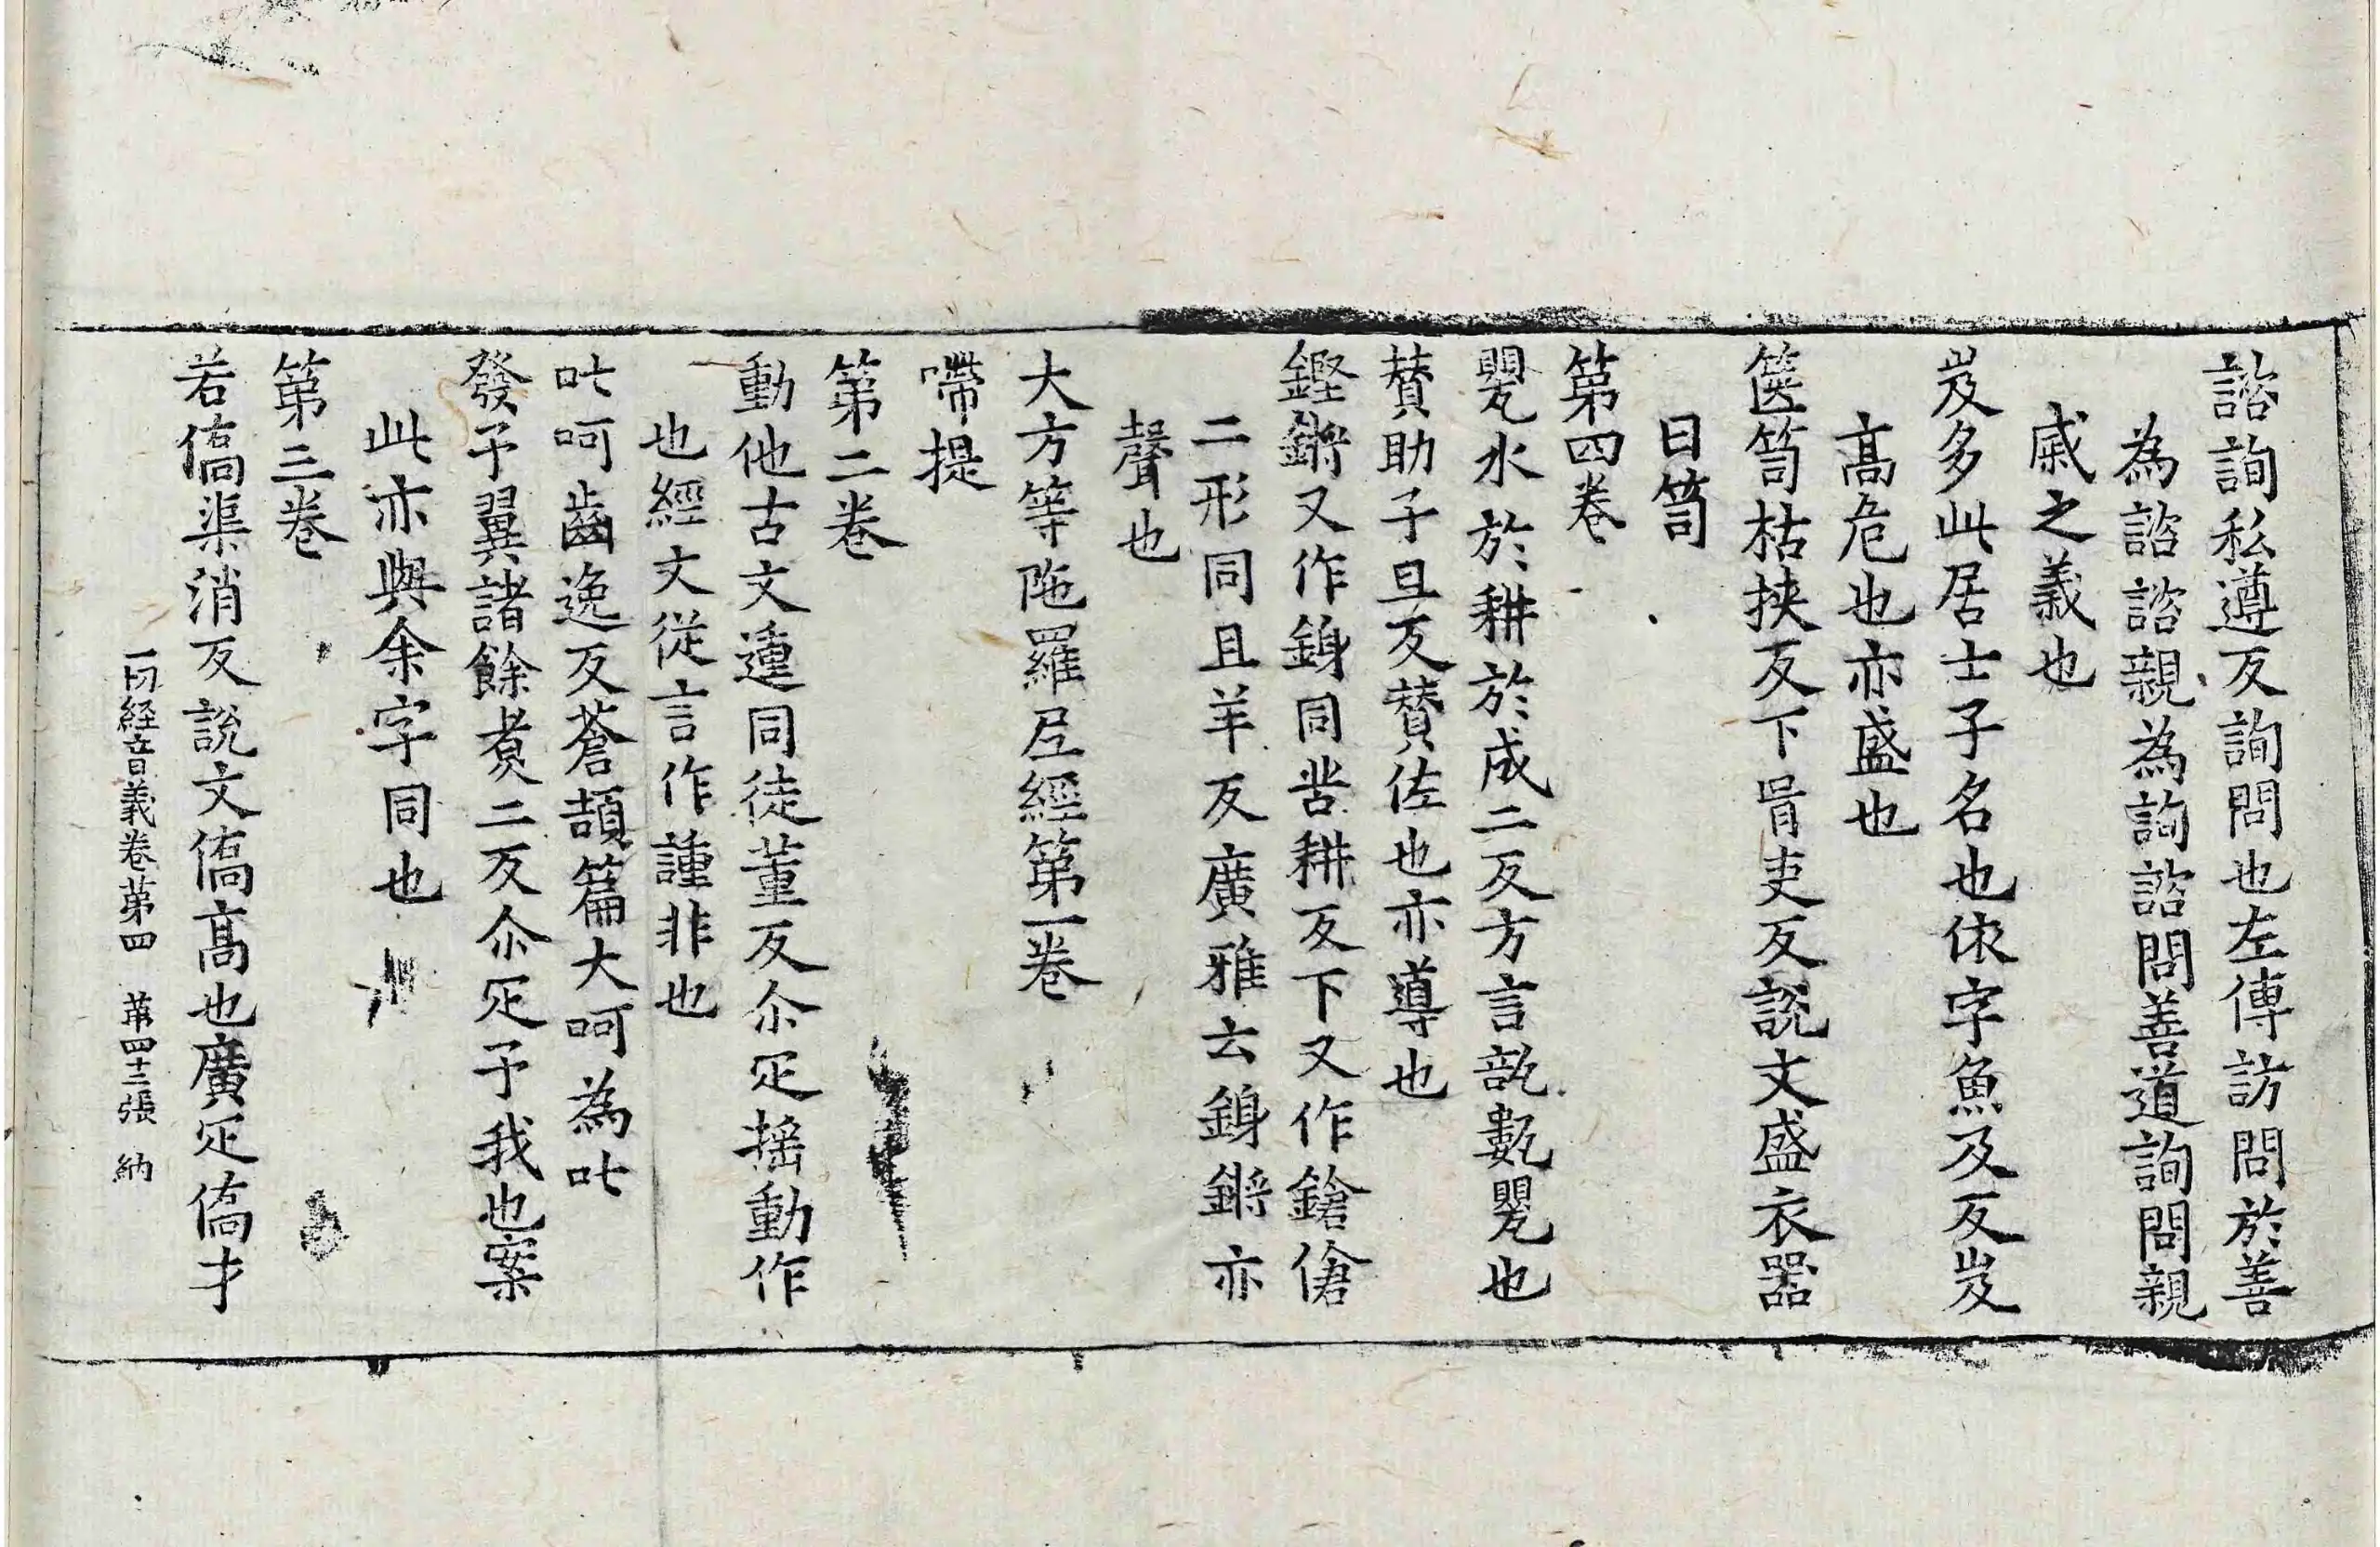 諮詢私遵反詢問也左傳訪問於善
為諮諮親為詢諮問善道詢問親
戚之義也
岌多此居士子名也依字魚及反岌
髙危也亦盛也
篋笥枯挾反下胥吏反說文盛衣器
曰笥
第四卷
甖水於耕於成二反方言瓿甊甖也
賛助子旦反賛佐也亦導也
鏗鏘又作鍞同苦耕反下又作鎗傖
二形同且羊反廣雅云鍞鏘亦
聲也
大方等陁羅𡰱經第一卷
㗣提
第二卷
動他古文連同徒董反尒疋揺動作
也經文従言作諥非也
吪呵齒逸反蒼頡篇大呵為吪
發予翼諸餘煑二反尒疋予我也案
此亦與余字同也
第三卷
若㑸渠消反說文㑸髙也廣疋㑸才
一切経音義卷苐四 苐四十二張 納